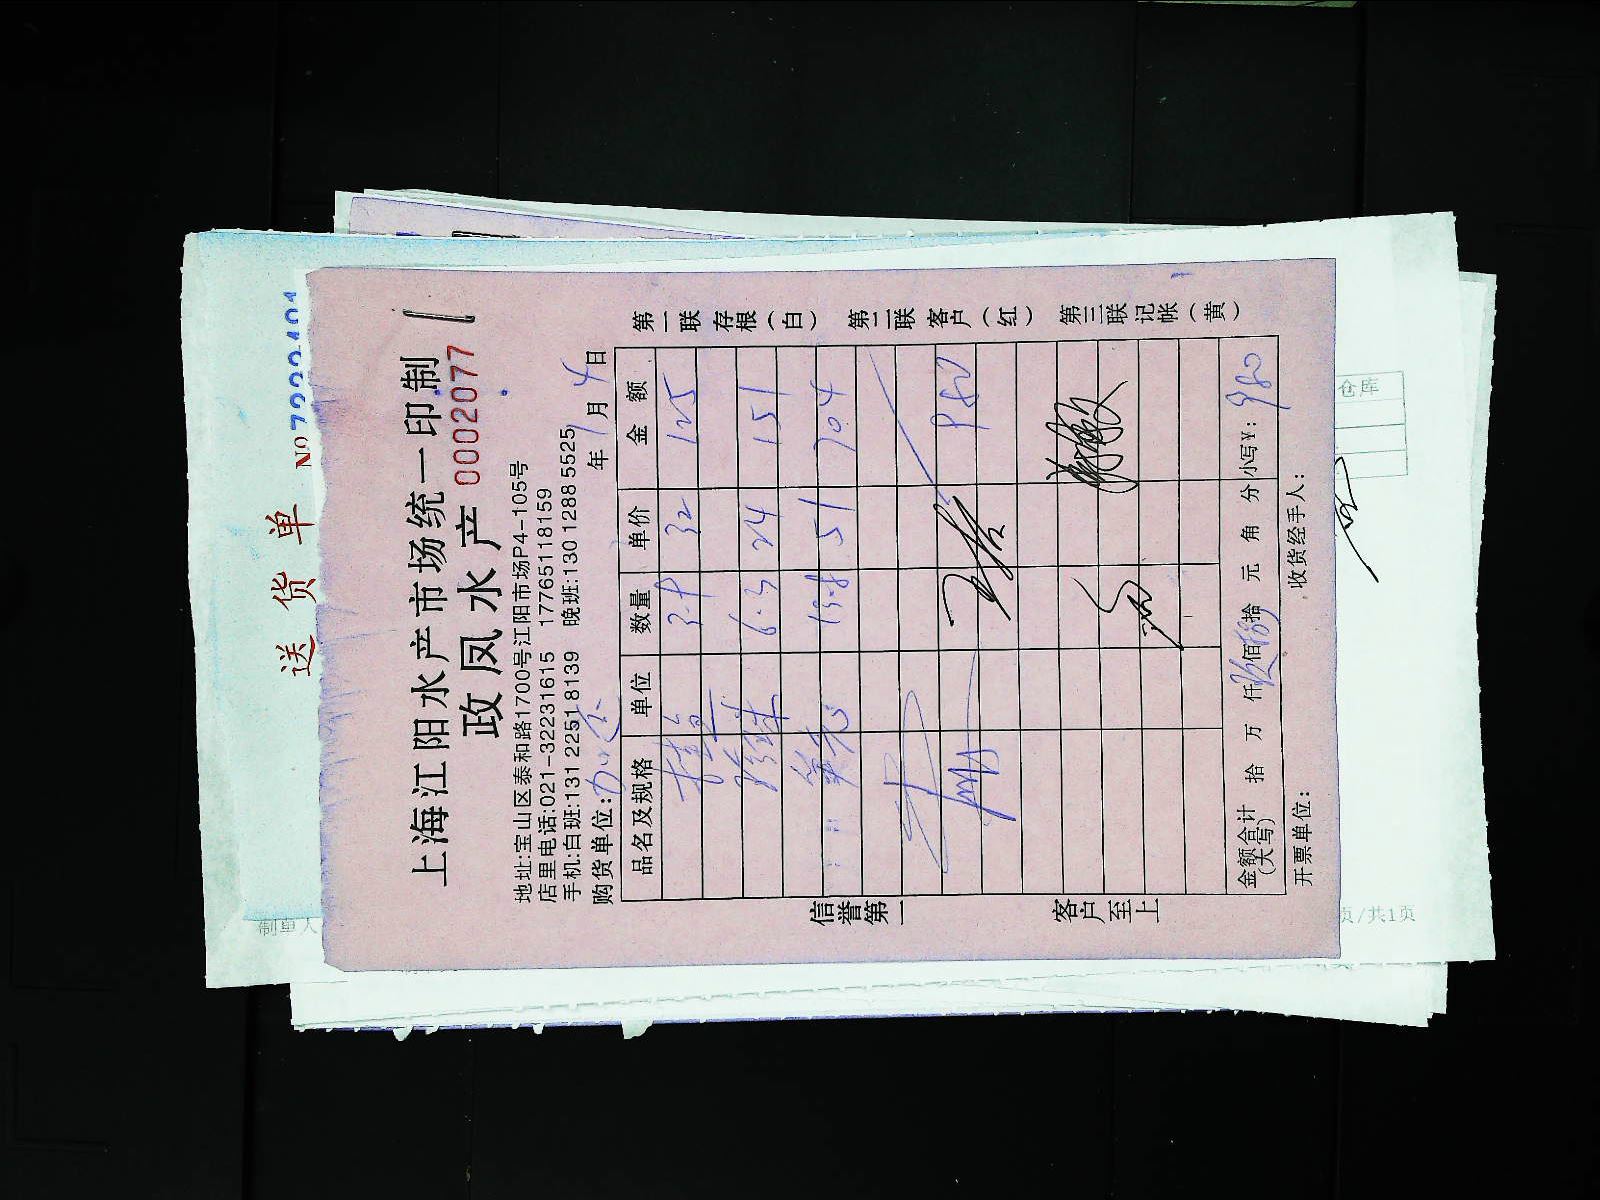 上海江阳水产市场统一印制
政凤水产 0002077
地址:宝山区泰和路1700号江阳市场P4-105号
店里电话:021-32231615 17765118159
手机:白班:131 2251 8139 晚班:130 1288 5525
购货单位: 年 9月4日
品名及规格 单位 数量 单价 金额
桂鱼 3.9 32 125
6.3 24 151
13.8 51 704
980
金额合计(大写) 拾 万 仟玖佰捌拾 元 角 分 小写¥: 980
开票单位: 收货经手人:
第一联 存根(白) 第二联 客户(红) 第三联 记帐(黄)
信誉第一 客户至上
送货单 No
仓库
制单人
页/共1页